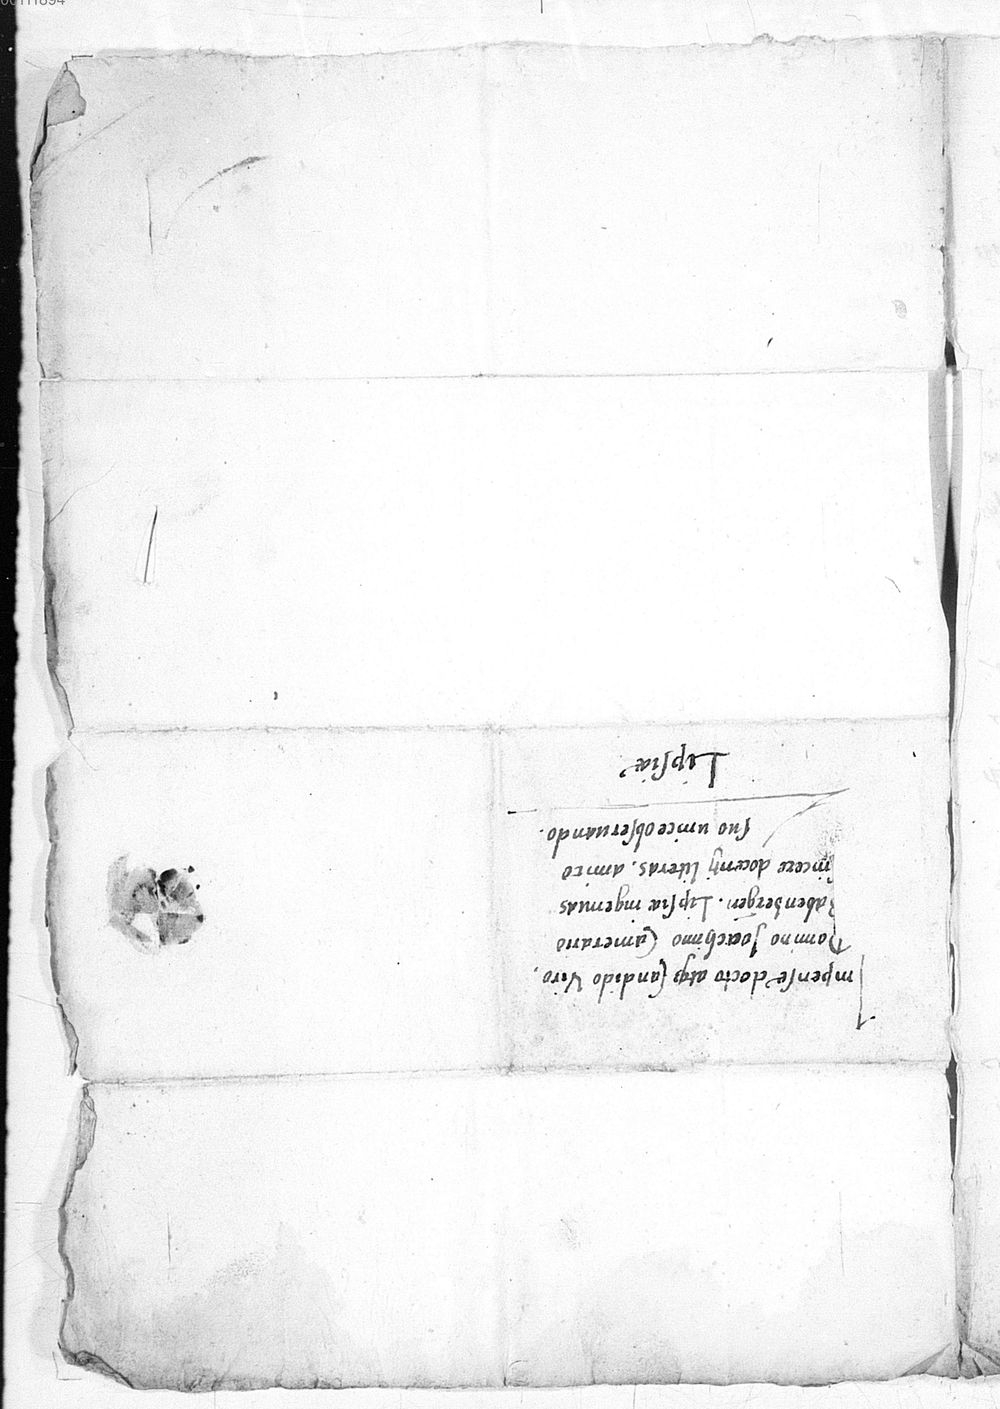 Impense docto atq₃ Candido Viro,
Domino Joachimo Camerario
Pabenbergen. Lipsiæ ingenuas
sincere docenti literas, amico
suo unice obseruando.
Lipsiæ